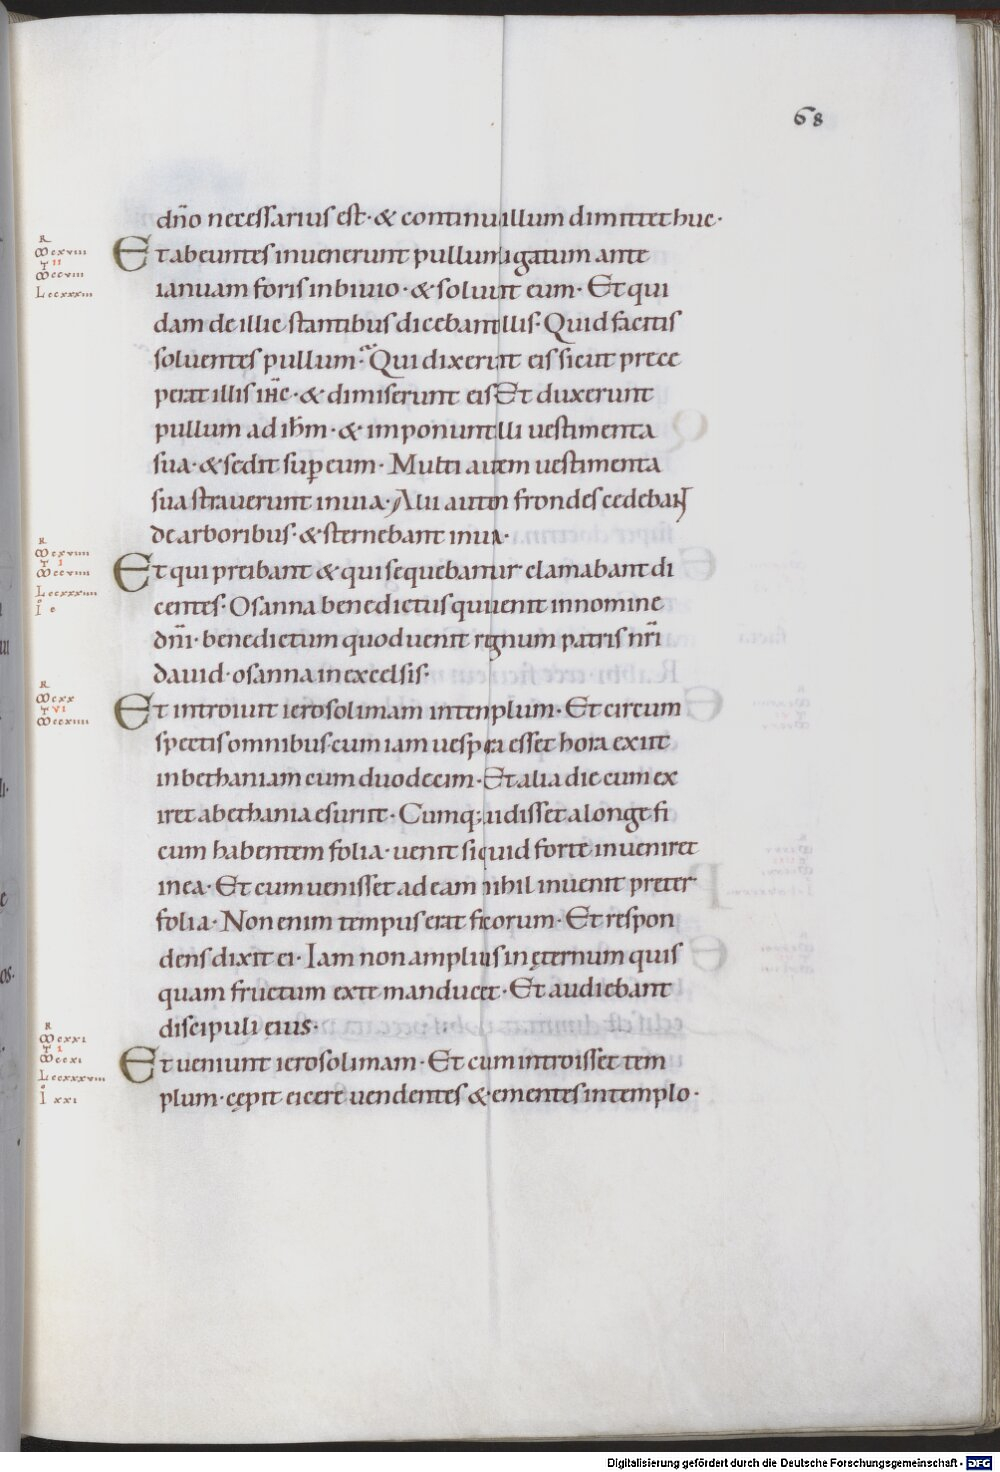 68
dñо necessarius est · & continu illum dimittet huc ·
Et abeuntes invenerunt pullum ligatum ante
ianuam foris inbivio · & solvunt eum · Et qui
dam de illic stantibus dicebant illis · Quid facitis
solventes pullum · Qui dixerunt eis sicut prece
perat illis ihc̄ · & dimiserunt eis Et duxerunt
pullum ad ihm̄ · & imponunt illi vestimenta
sua · & sedit sup eum · Multi autem vestimenta
sua straverunt inuia · Alii autem frondes cedebant
de arboribus · & sternebant inuia ·
Et qui preibant & qui sequebantur clamabant di
centes · Osanna benedictus qui uenit innomine
dñi · benedictum quod uenit regnum patris nr̄i
dauid · osanna inexcelsis ·
Et introiuit ierosolimam intemplum · Et circum
spectis omnibus cum iam uespera esset hora exiit
inbethaniam cum duodecim · Et alia die cum ex
iret abethania esuriit · Cumq; uidisset alonge fi
cum habentem folia · uenit si quid forte inueniret
inea · Et cum uenisset ad eam nihil inuenit preter
folia · Non enim tempus erat ficorum · Et respon
dens dixit ei · Iam non amplius in ęternum quis
quam fructum exte manducet · Et audiebant
discipuli ęius ·
Et ueniunt ierosolimam · Et cum introisset tem
plum · cępit eicere uendentes & ementes intemplo ·
Digitalisierung gefördert durch die Deutsche Forschungsgemeinschaft - DFG